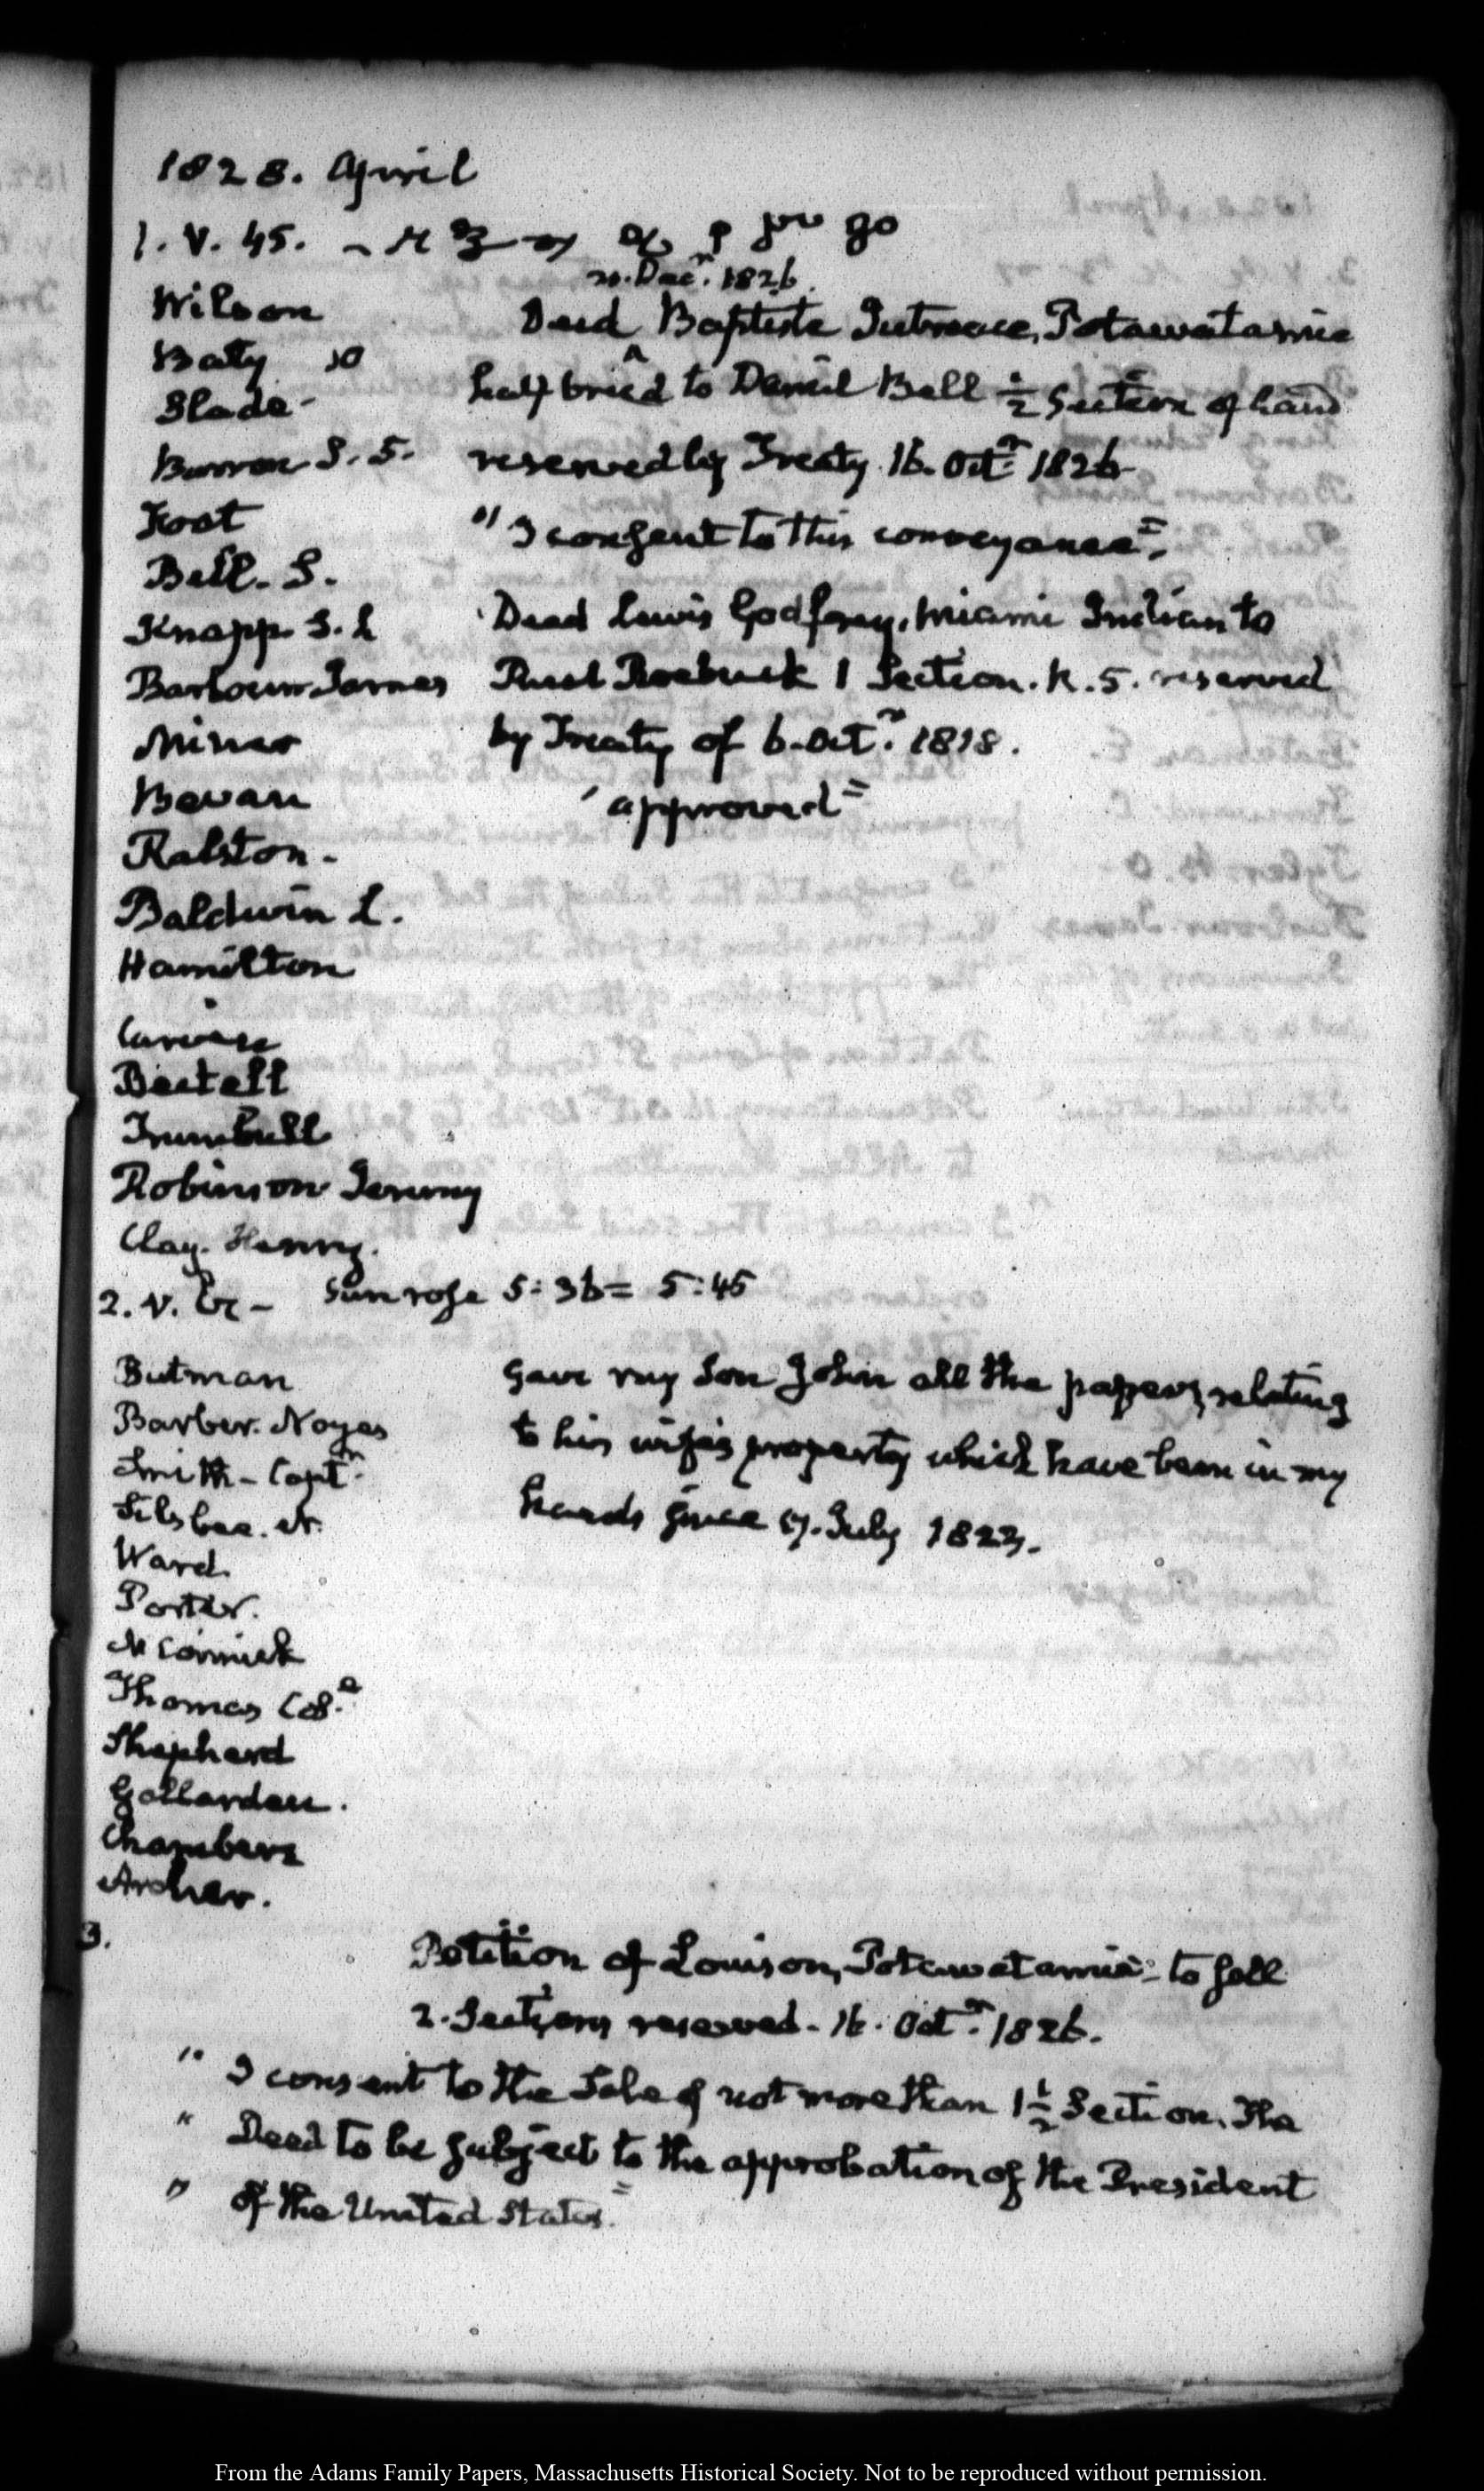 1828. April
1. V. 45.
20. Decr. 1826.
Wilson
Baty
Slade-
S. S.
Foot
Bell. S.
Knapp. S. L
Barbour James
Minor
Bevan
Ralston-
Baldwin L.
Hamilton
Trumbull
Robinson
Clay. Henry.
Deed Baptiste Potawatamie
half bried to Daniel Bell ½ Section of Land
reserved by Treaty 16. Octr. 1826
"I consent to this conveyance"
Deed Lewis Godfrey, Miami Indian to
Roebuck 1 Section. N. 5. reserved
by Treaty of 6. Octr. 1818.
"approved"
2. V. Sun rose 5:36= 5:45
Butman
Barber. Noyes
Smith- Captn.
Silsbee. N.
Ward
Porter.
McCormick
Thomas
Shepherd
Chambers
Archer.
Gave my Son John all the papers, relating
to his wife's property which have been in my
hands since July 1823.
3.
Petition of Louison, Potawatamie- to sell
2. Sections reserved. 16. Octr. 1826.
" I consent to the Sale of not more than 1½ Section. The
" Deed to be subject to the approbation of the President
" of the United States"
From the Adams Family Papers, Massachusetts Historical Society. Not to be reproduced without permission.